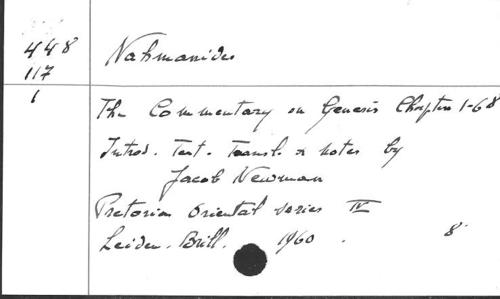 448
117
1
Nahmanides
The Commentary on Genesis Chapters 1-68
Introd. Text. Transl. & notes by
Jacob Newman
Pretorian Oriental series IV
Leiden. Brill. 1960. 8°